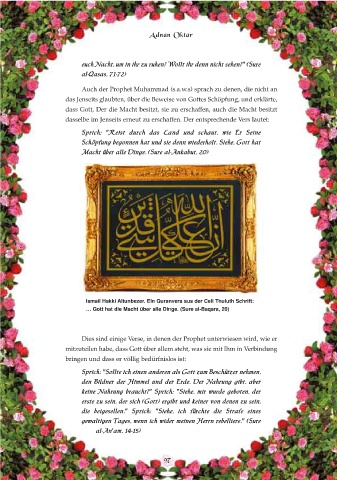 Adnan Oktar
euch Nacht, um in ihr zu ruhen? Wollt ihr denn nicht sehen?" (Sure
al-Qasas, 71-72)
Auch der Prophet Muhammad (s.a.w.s) sprach zu denen, die nicht an
das Jenseits glaubten, über die Beweise von Gottes Schöpfung, und erklärte,
dass Gott, Der die Macht besitzt, sie zu erschaffen, auch die Macht besitzt
dasselbe im Jenseits erneut zu erschaffen. Der entsprechende Vers lautet:
Sprich: "Reist durch das Land und schaut, wie Er Seine
Schöpfung begonnen hat und sie dann wiederholt. Siehe, Gott hat
Macht über alle Dinge. (Sure al-Ankabut, 20)
إن الله على كل شيء قدير
Ismail Hakki Altunbezer. Ein Quranvers aus der Celi Thuluth Schrift:
... Gott hat die Macht über alle Dinge. (Sure al-Baqara, 20)
Dies sind einige Verse, in denen der Prophet unterwiesen wird, wie er
mitzuteilen habe, dass Gott über allem steht, was sie mit Ihm in Verbindung
bringen und dass er völlig bedürfnislos ist:
Sprich: "Sollte ich einen anderen als Gott zum Beschützer nehmen,
den Bildner der Himmel und der Erde, Der Nahrung gibt, aber
keine Nahrung braucht?" Sprich: "Siehe, mir wurde geboten, der
erste zu sein, der sich (Gott) ergibt und keiner von denen zu sein,
die beigesellen." Sprich: "Siehe, ich fürchte die Strafe eines
gewaltigen Tages, wenn ich wider meinen Herrn rebelliere." (Sure
al-An'am, 14-15)
97